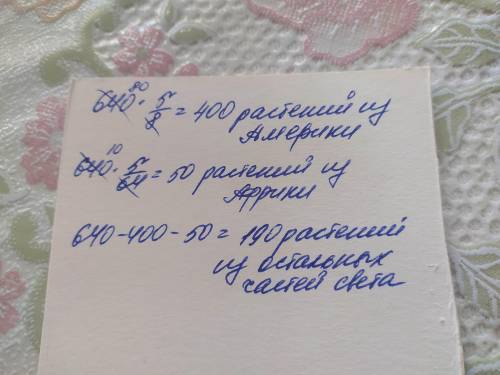 80
640 · 5/8 = 400 растений из
Америки
10
640 · 5/64 = 50 растений из
Африки
640-400-50 = 190 растений
из остальных
частей света